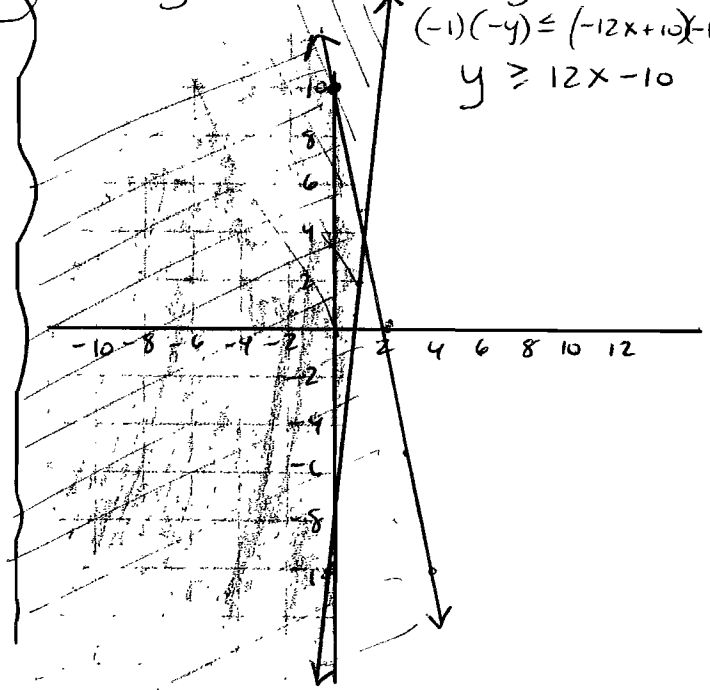 (-1)(-y) ≤ (-12x+10)(-1
y ≥ 12x - 10
10
8
6
4
2
-10 -8 -6 -4 -2 2 4 6 8 10 12
-2
-4
-6
-8